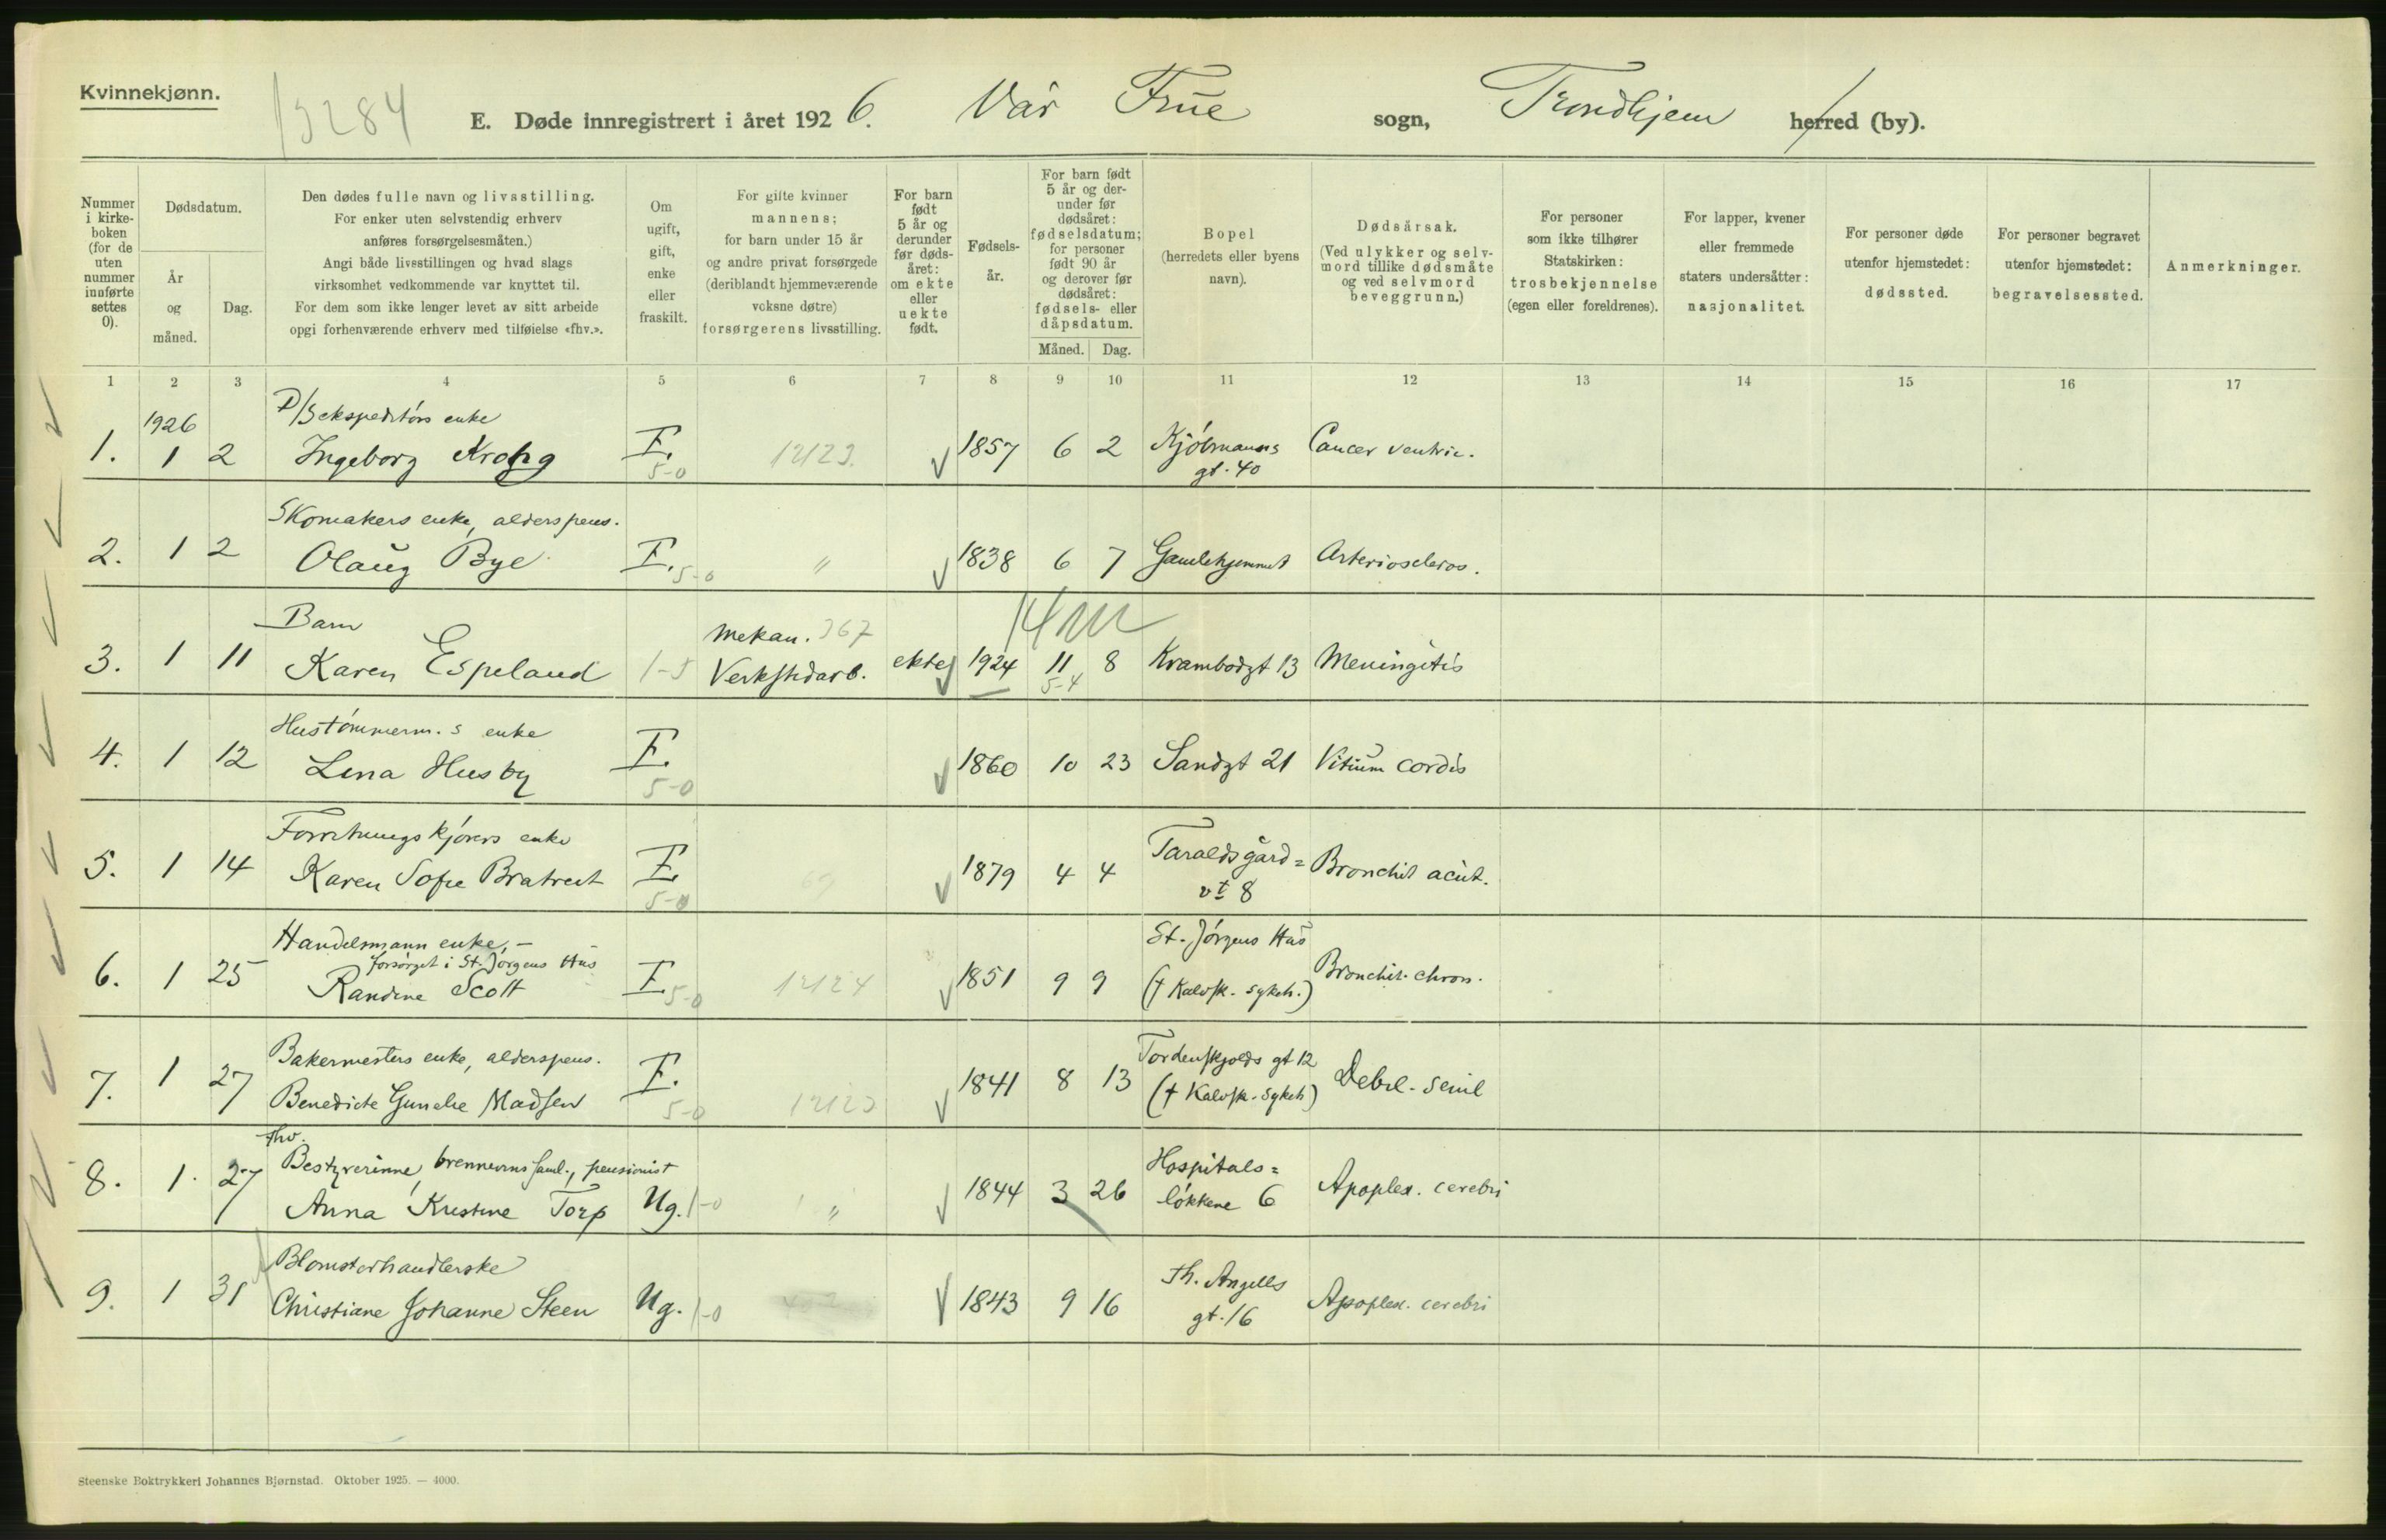 Kvinnekjønn.
13284
E. Døde innregistrert i året 1926. Vår Frue sogn, Trondhjem herred (by).
Nummer i kirke-boken (for de uten nummer innførte settes 0).
Dødsdatum.
År og måned.
Dag.
Den dødes fulle navn og livsstilling.
For enker uten selvstendig erhverv
anføres forsørgelsesmåten.)
Angi både livsstillingen og hvad slags
virksomhet vedkommende var knyttet til.
For dem som ikke lenger levet av sitt arbeide
opgi forhenværende erhverv med tilføielse «fhv.».
Om ugift, gift, enke eller fraskilt.
For gifte kvinner
mannens;
for barn under 15 år
og andre privat forsørgede
(deriblandt hjemmeværende
voksne døtre)
forsørgerens livsstilling.
For barn født 5 år og derunder før døds-året: om ekte eller uekte født.
Fødsels-år.
For barn født 5 år og der-under før dødsåret: fødselsdatum; for personer født 90 år og derover før dødsåret: fødsels- eller dåpsdatum.
Måned. Dag.
Bopel
(herredets eller byens
navn).
Dødsårsak.
(Ved ulykker og selv-
mord tillike dødsmåte
og ved selvmord
beveggrunn.)
For personer
som ikke tilhører
Statskirken:
trosbekjennelse
(egen eller foreldrenes).
For lapper, kvener
eller fremmede
staters undersåtter:
nasjonalitet.
For personer døde
utenfor hjemstedet:
dødssted.
For personer begravet
utenfor hjemstedet:
begravelsessted.
Anmerkninger.
1 2 3 4 5 6 7 8 9 10 11 12 13 14 15 16 17
1926
D/S ekspeditørs enke
1. 1 2 Ingeborg Krohg E. 5-0 12123. 1857 6 2 Kjøbmanns gt. 40 Cancer ventric.
Skomakers enke, alderspens.
2. 1 2 Olaug Bye E. 5-0 " 1838 6 7 Gamlehjemmet Arterioscleros.
Barn
3. 1 11 Karen Espeland 1-5 Mekan. 367 Verkstedarb. ekte 1924 11 8 5-4 Krambodgt 13 Meningitis
14 m
Hustømmerm.s enke
4. 1 12 Lena Husby E. 5-0 1860 10 23 Sandgt 21 Vitium cordis
Forretningskjørers enke
5. 1 14 Karen Sofie Bratreit E. 5-0 69 1879 4 4 Taraldsgård= vt 8 Bronchit acut.
Handelsmann enke, -
forsørget i St. Jørgens Hus
6. 1 25 Randine Scott E. 5-0 12124 1851 9 9 St. Jørgens Hus († Kalvsk. sykeh.) Bronchit. chron.
Bakermesters enke, alderspens.
7. 1 27 Benedicte Gunelie Madsen E. 5-0 12123 1841 8 13 Tordenskjolds gt 12 († Kalvsk. sykeh) Debil. senil
fhv.
Bestyrerinne, brennevins saml., pensionist
8. 1. 27 Anna Kristine Torp Ug. 1-0 " 1844 3 26 Hospitals= løkkene 6 Apoplex. cerebri
Blomsterhandlerske
9. 1 31 Christiane Johanne Steen Ug. 1-0 1843 9 16 Th. Angells gt. 16 Apoplex. cerebri
Steenske Boktrykkeri Johannes Bjørnstad. Oktober 1925. — 4000.